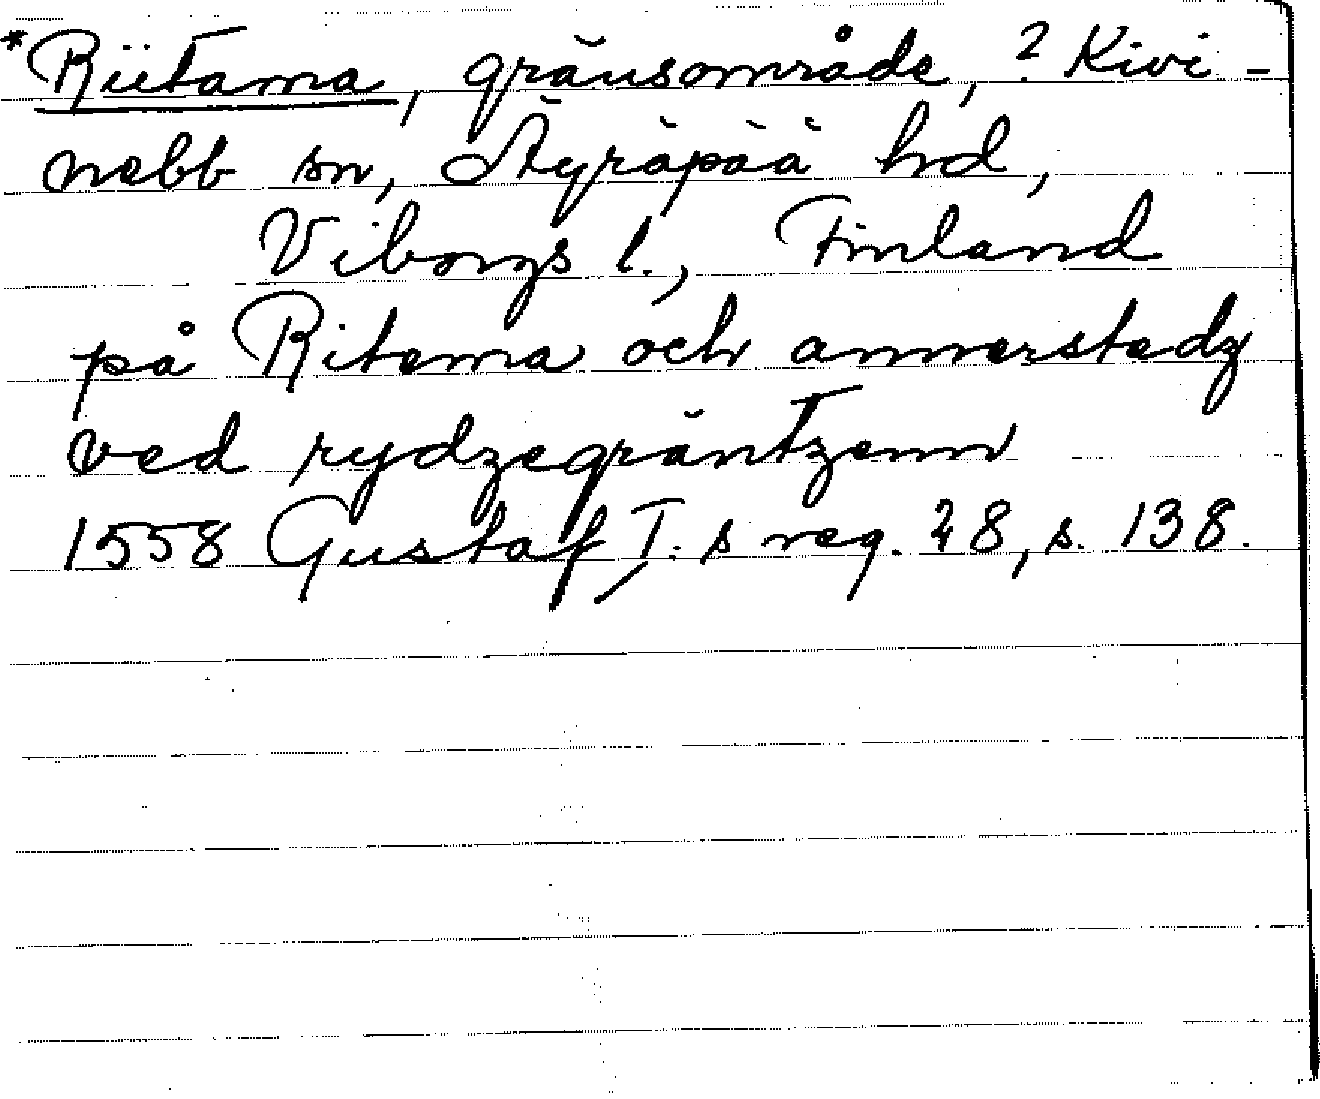 *Riitama, gränsområde, ? Kivi-
nebb sn, Äyräpää hd,
Viborgs l., Finland
på Ritama och annerstedz
ved rydzegräntzenn
1558 Gustaf I:s reg. 28, s. 138.